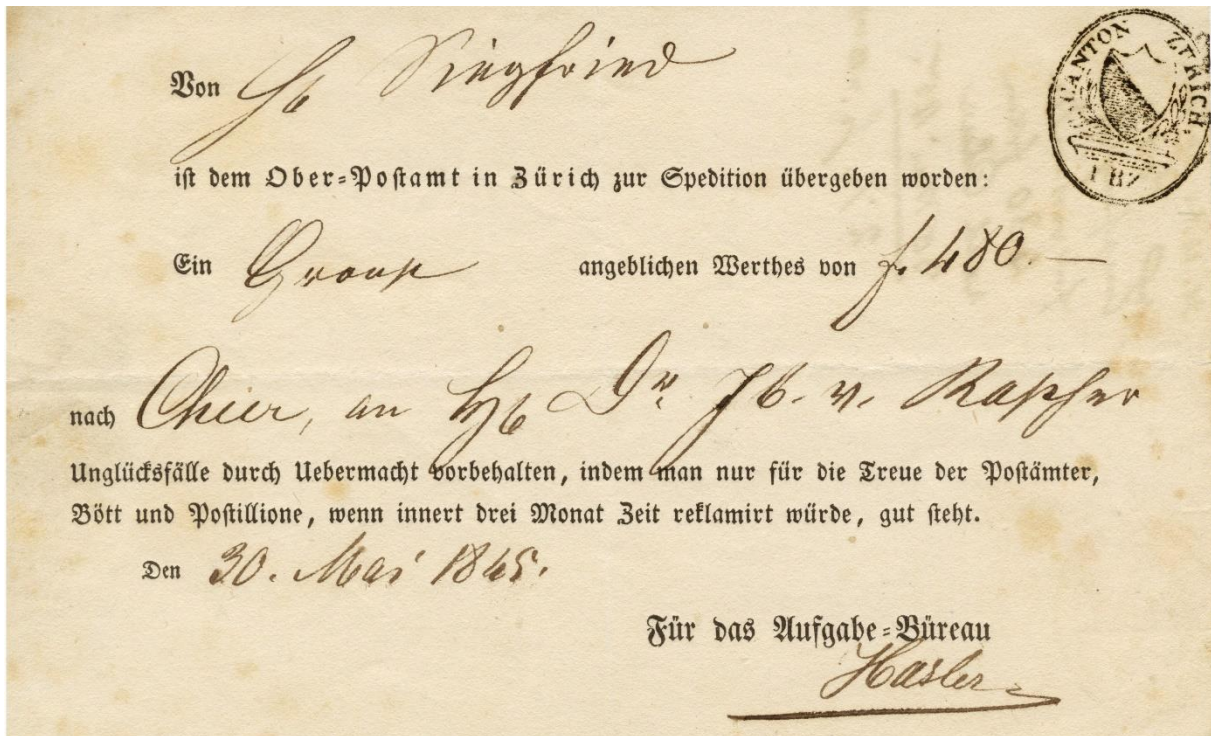 CANTON ZÜRICH.
1 RZ
Von Hr Siegfried
ist dem Ober-Postamt in Zürich zur Spedition übergeben worden:
Ein Group angeblichen Werthes von f. 480.—
nach Chur, an Hr Dr. Jb. v. Rascher
Unglücksfälle durch Uebermacht vorbehalten, indem man nur für die Treue der Postämter,
Bött und Postillione, wenn innert drei Monat Zeit reklamirt würde, gut steht.
Den 30. Mai 1845.
Für das Aufgabe-Büreau
Hasler